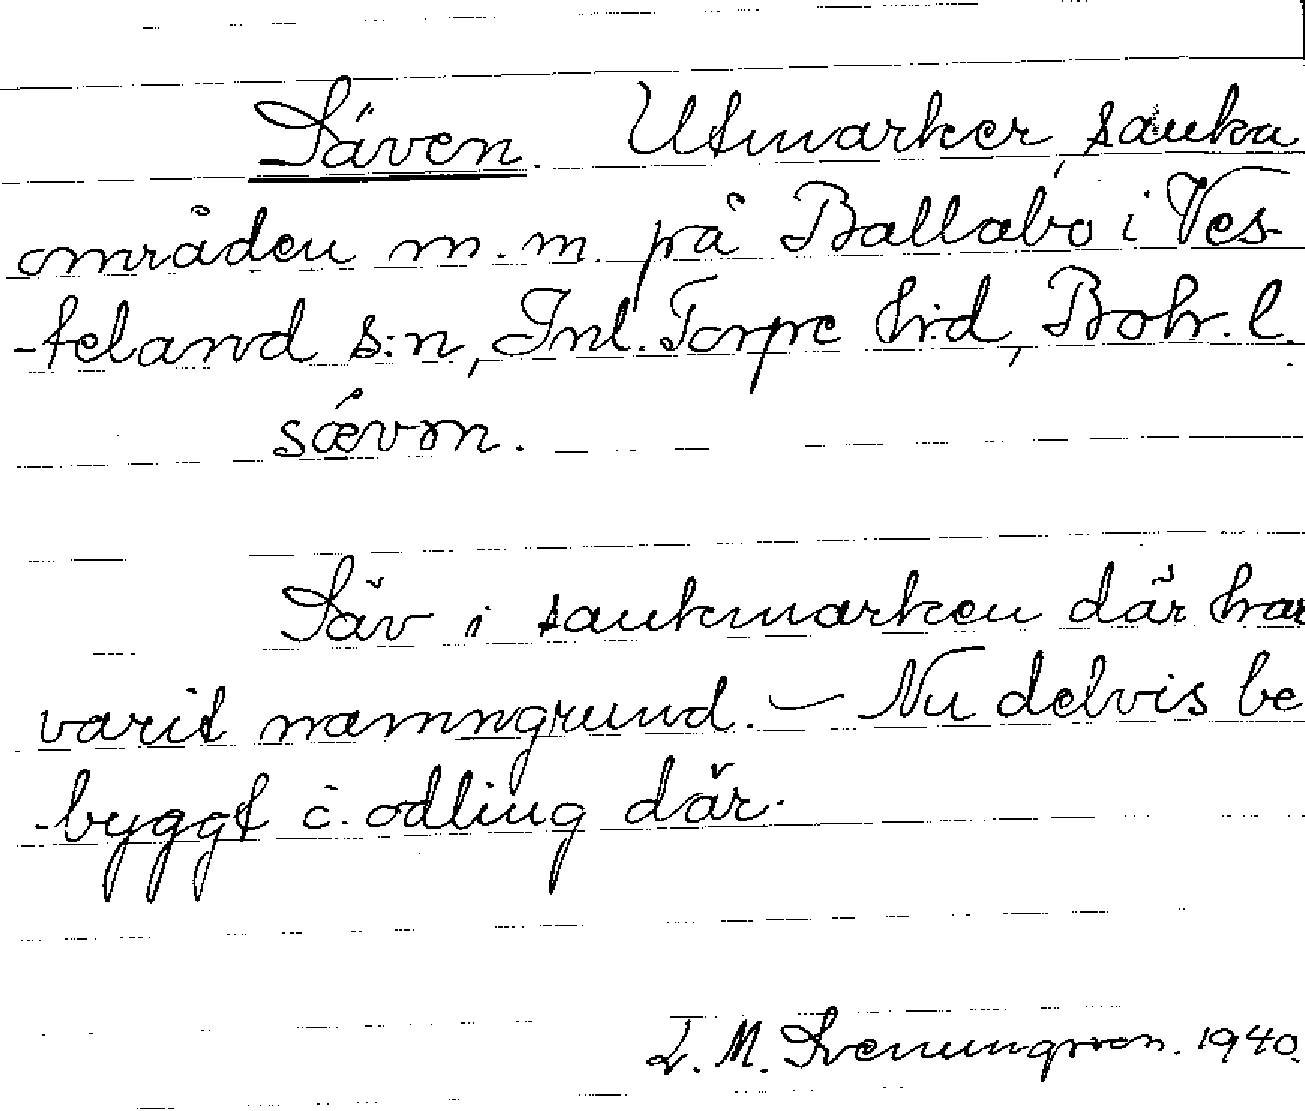 Säven. Utmarker, sanka
områden m.m. på Ballabo i Ves-
-terland s:n, Inl. Torpe h:d, Boh. l.
sævɷn.
Säv i sankmarken där har
varit namngrund. – Nu delvis be
-byggt o. odling där.
L. M. Svenungsson. 1940.